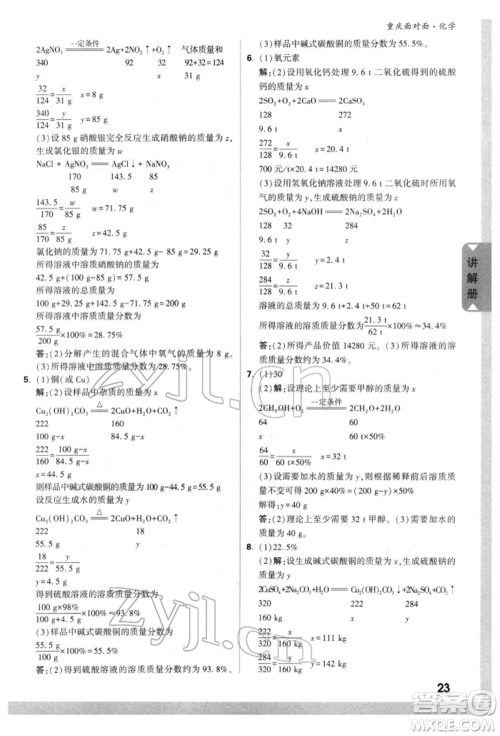 重庆面对面·化学
2AgNO₃ 一定条件 2Ag+2NO₂↑+O₂↑ 气体质量和
340 124 32 92+32=124
32/124=x/31 g
340/124=y/31 g
(3)设 85 g硝酸银完全反应生成硝酸钠的质量为 z,
生成氯化银的质量为 w
NaCl + AgNO₃ ══ AgCl↓ + NaNO₃
170 143.5 85
85 g w z
143.5/170=w/85 g
85/170=z/85 g
氯化钠的质量为 71.75 g+42.5 g-
85 g=29.25 g
所得溶液中溶质硝酸钠的质量为
42.5 g+(100 g-85 g)=57.5 g
所得溶液的质量为
100 g+29.25 g+142.5 g-71.75 g=200 g
所得溶液中溶质的质量分数为
×100%=28.75%
答:(2)分解产生的混合气体中氧气的质量是 8 g。
(3)所得溶液中溶质的质量分数为 28.75%。
5. (1)铜(或 Cu)
(2)解:设样品中杂质的质量为 x
Cu₂(OH)₂CO₃ △ 2CuO+H₂O+CO₂↑
222 160
100 g-x 84.5 g-x
222/160=(100 g-x)/(84.5 g-x)
x=44.5 g
则样品中碱式碳酸铜的质量为 100 g-44.5 g=55.5 g
设反应生成二氧化碳的质量为 y
Cu₂(OH)₂CO₃ △ 2CuO+H₂O+CO₂↑
222 44
55.5 g y
222/44=55.5 g/y
y=11 g
所得硫酸溶液的溶质质量分数为
100 g×98%/ ×100%=93.8%
(3)样品中碱式碳酸铜的质量分数为
55.5 g/100 g×100%=55.5%
答:(2)所得硫酸溶液的溶质质量分数约为 93.8%。
(3)样品中碱式碳酸铜的质量分数为 55.5%。
6. (1)氧元素
解:(2)设用氧化钙处理 9.6 t二氧化硫得到的硫酸
钙的质量为 x
2SO₂+O₂+2CaO ══ 2CaSO₄
128 272
9.6 t x
272/128=x/9.6 t
700 元/t×20.4 t=14280 元
(3)设用氢氧化钠溶液处理 9.6 t二氧化硫时所用氧
气的质量为 y,生成硫酸钠的质量为 z
2SO₂+O₂+4NaOH ══ 2Na₂SO₄+2H₂O
128 32 284
9.6 t y z
32/128=y/9.6 t y=2.4 t
284/128=z/9.6 t z=21.3 t
溶液的总质量为 9.6 t+50 t+2.4 t=62 t
所得溶液中溶质质量分数为
21.3 t/62 t×100%≈34.4%
答:(2)所得产品价值 14280 元。
(3)所得溶液中溶质质量分数约为 34.4%。
7. (1)30
(2)解:设理论上至少需要甲醇的质量为 x
2CH₃OH+O₂ 一定条件 2CH₂O+2H₂O
64 60
x 60 t×50%
64/60=x/(60 t×50%) x=32 t
(3)设需要加水的质量为 y,根据稀释前后溶质质量
y=40 g
答:(2)理论上至少需要 32 t甲醇。(3)需要加水的
质量为 40 g。
8. (1)22.5%
(2)解:设生成碱式碳酸铜的质量为 x,生成硫酸钠
的质量为 y
2CuSO₄+2Na₂CO₃+H₂O ══ Cu₂(OH)₂CO₃↓+2Na₂SO₄+CO₂↑
320 222 284
160 kg x y
222/320=x/160 kg x=111 kg
284/320=y/160 kg y=142 kg
讲解册
23
zyjl.cn
zyjl.cn
答案圈
MXQE.COM